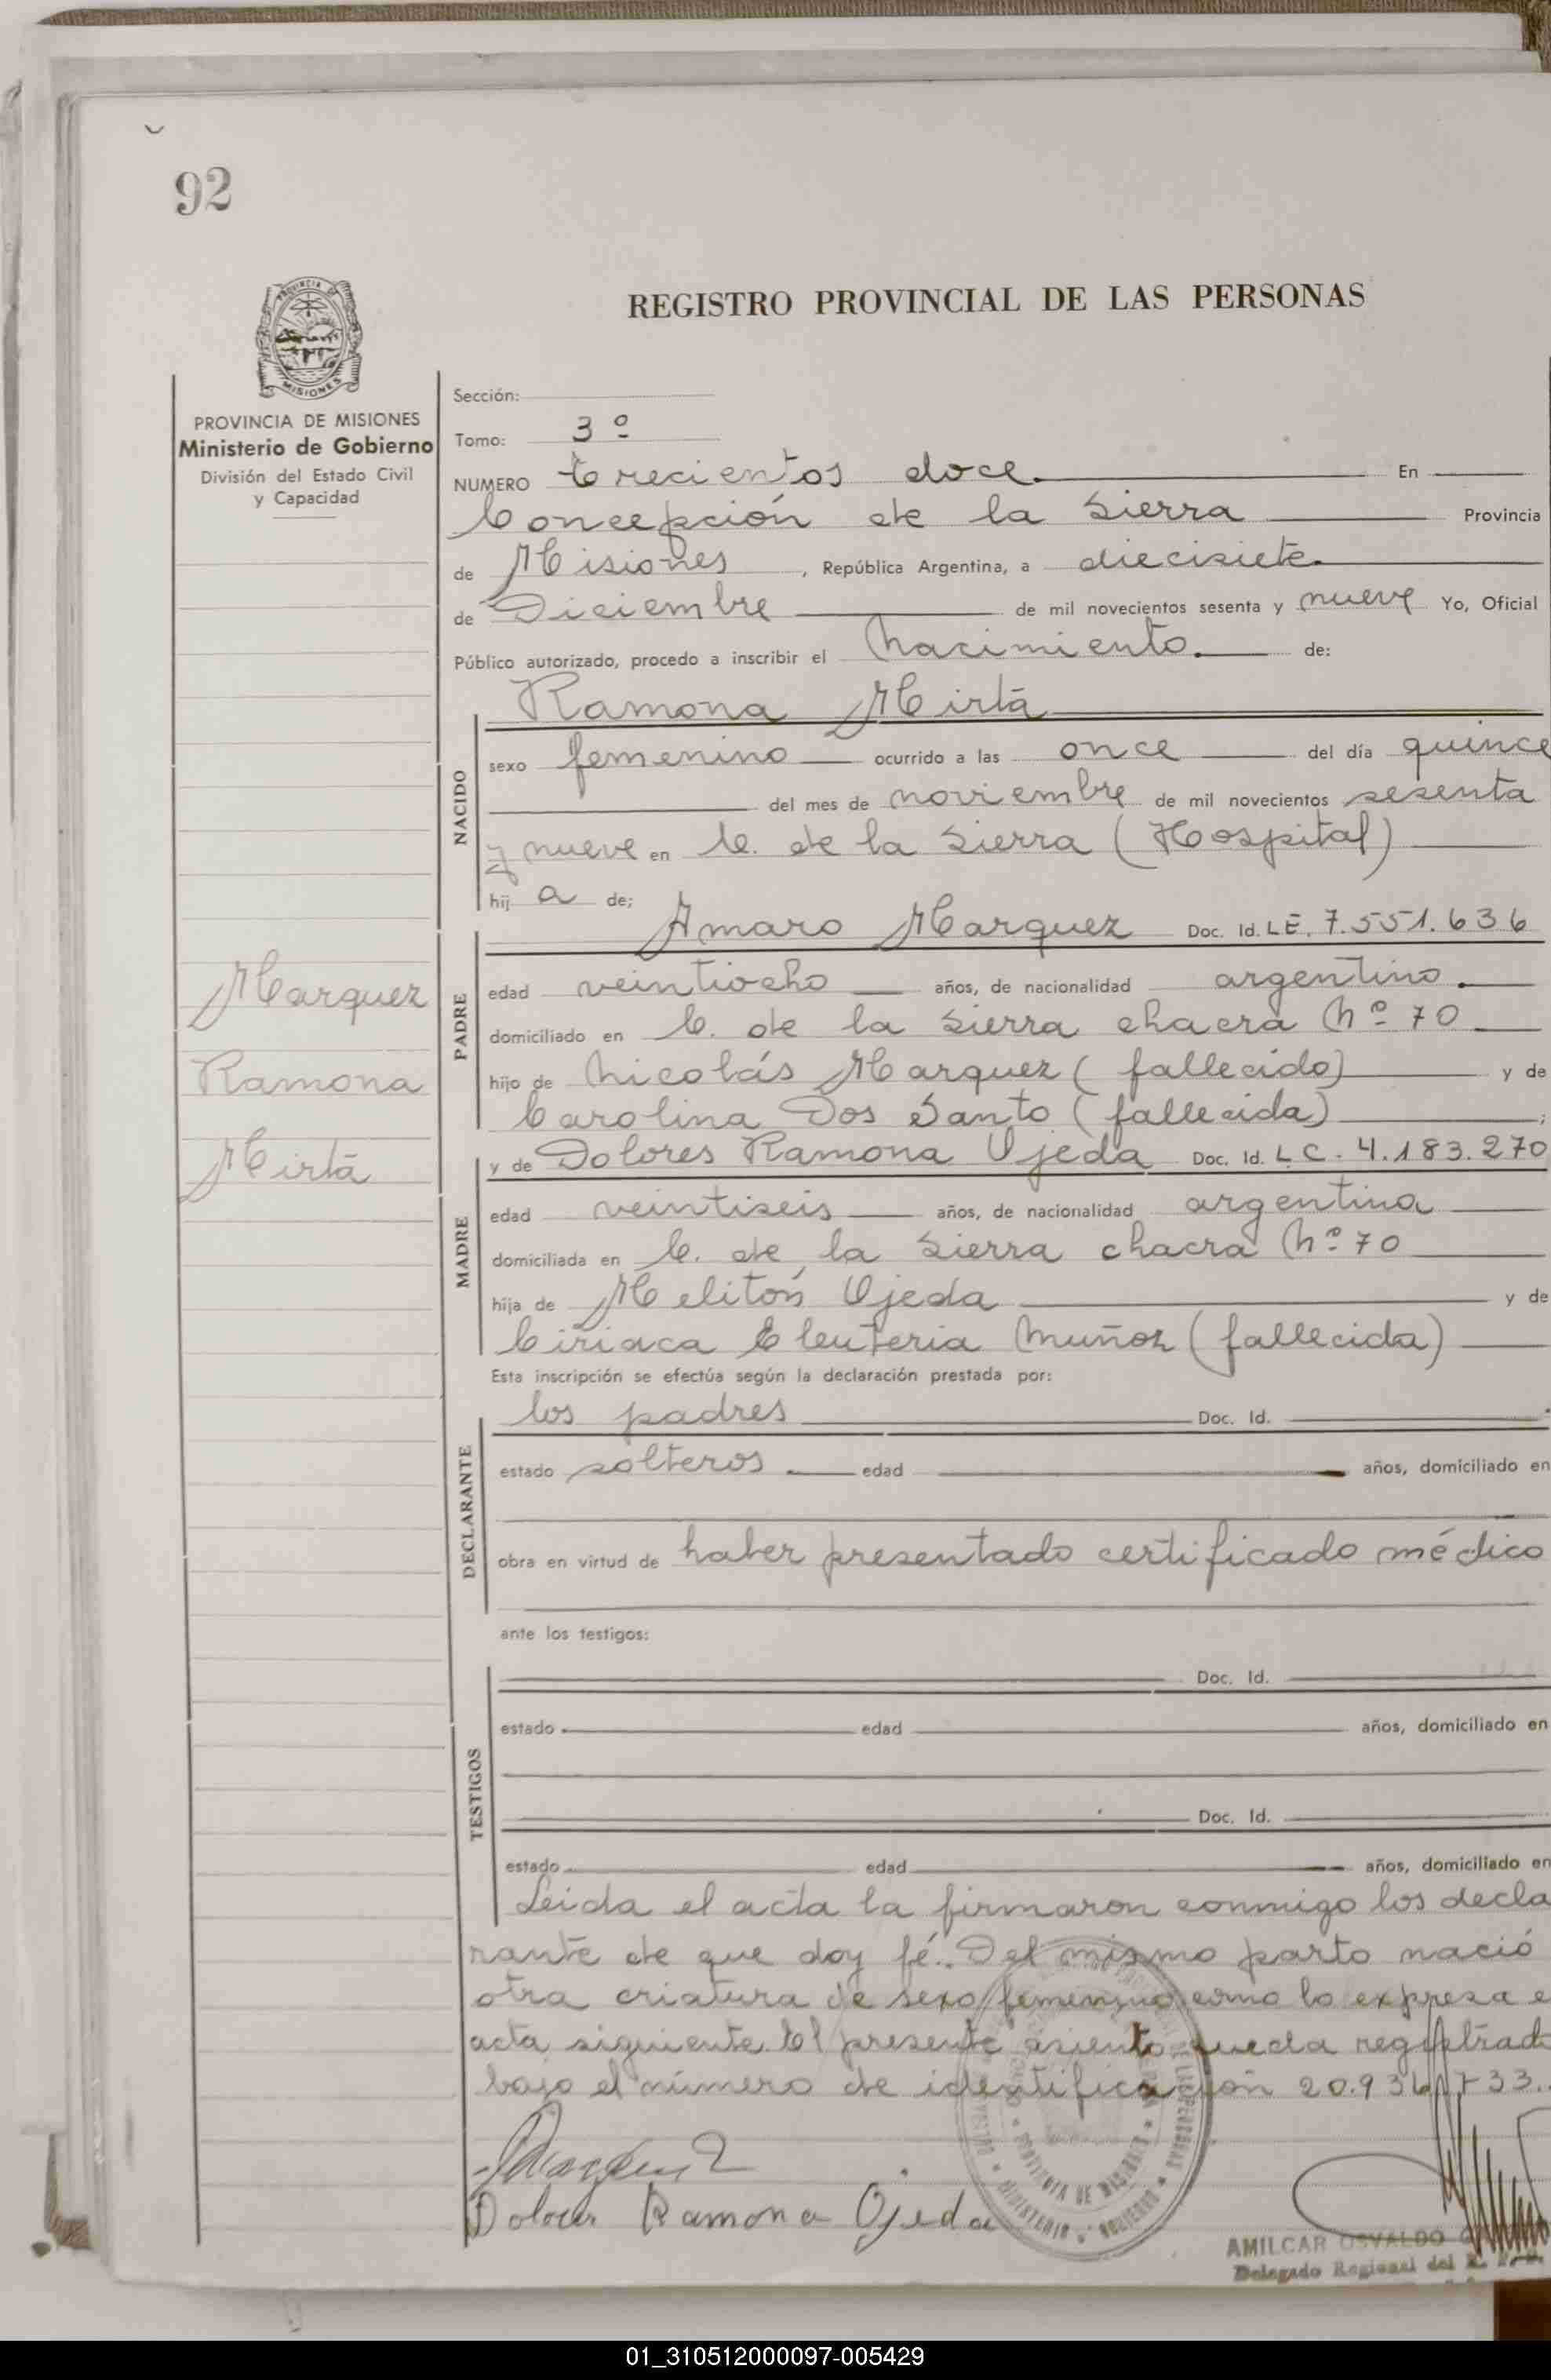 92
REGISTRO PROVINCIAL DE LAS PERSONAS
MISIONES
PROVINCIA DE MISIONES
Ministerio de Gobierno
División del Estado Civil
y Capacidad
Sección:
Tomo: 3º
NUMERO trecientos doce. En
Concepción de la Sierra Provincia
de Misiones, República Argentina, a diecisiete
de Diciembre de mil novecientos sesenta y nueve Yo, Oficial
Público autorizado, procedo a inscribir el Nacimiento. de:
Ramona Mirta
NACIDO
sexo femenino ocurrido a las once del día quince
del mes de noviembre de mil novecientos sesenta
y nueve en C. de la Sierra (Hospital)
hij a de;
Amaro Marquez Doc. Id. L E. 7.551.636
Marquez
Ramona
Mirta
PADRE
edad veintiocho años, de nacionalidad argentino.
domiciliado en C. de la Sierra chacra Nº 70
hijo de Nicolás Marquez (fallecido) y de
Carolina Dos Santo (fallecida) ;
y de Dolores Ramona Ojeda Doc. Id. L C. 4.183.270
MADRE
edad veintiseis años, de nacionalidad argentina
domiciliada en C. de la Sierra chacra Nº 70
hija de Melitón Ojeda y de
Ciriaca Eleuteria Muñoz (fallecida)
Esta inscripción se efectúa según la declaración prestada por:
DECLARANTE
los padres Doc. Id.
estado solteros edad años, domiciliado en
obra en virtud de haber presentado certificado médico
ante los testigos:
TESTIGOS
Doc. Id.
estado edad años, domiciliado en
Doc. Id.
estado edad años, domiciliado en
Leida el acta la firmaron conmigo los decla
rante de que doy fé. Del mismo parto nació
otra criatura de sexo femenino como lo expresa e
acta siguiente. El presente asiento queda registrad
bajo el número de identificación
Marquez
Dolores Ramona Ojeda
AMILCAR OSVALDO
Delegado Regional del
01_310512000097-005429